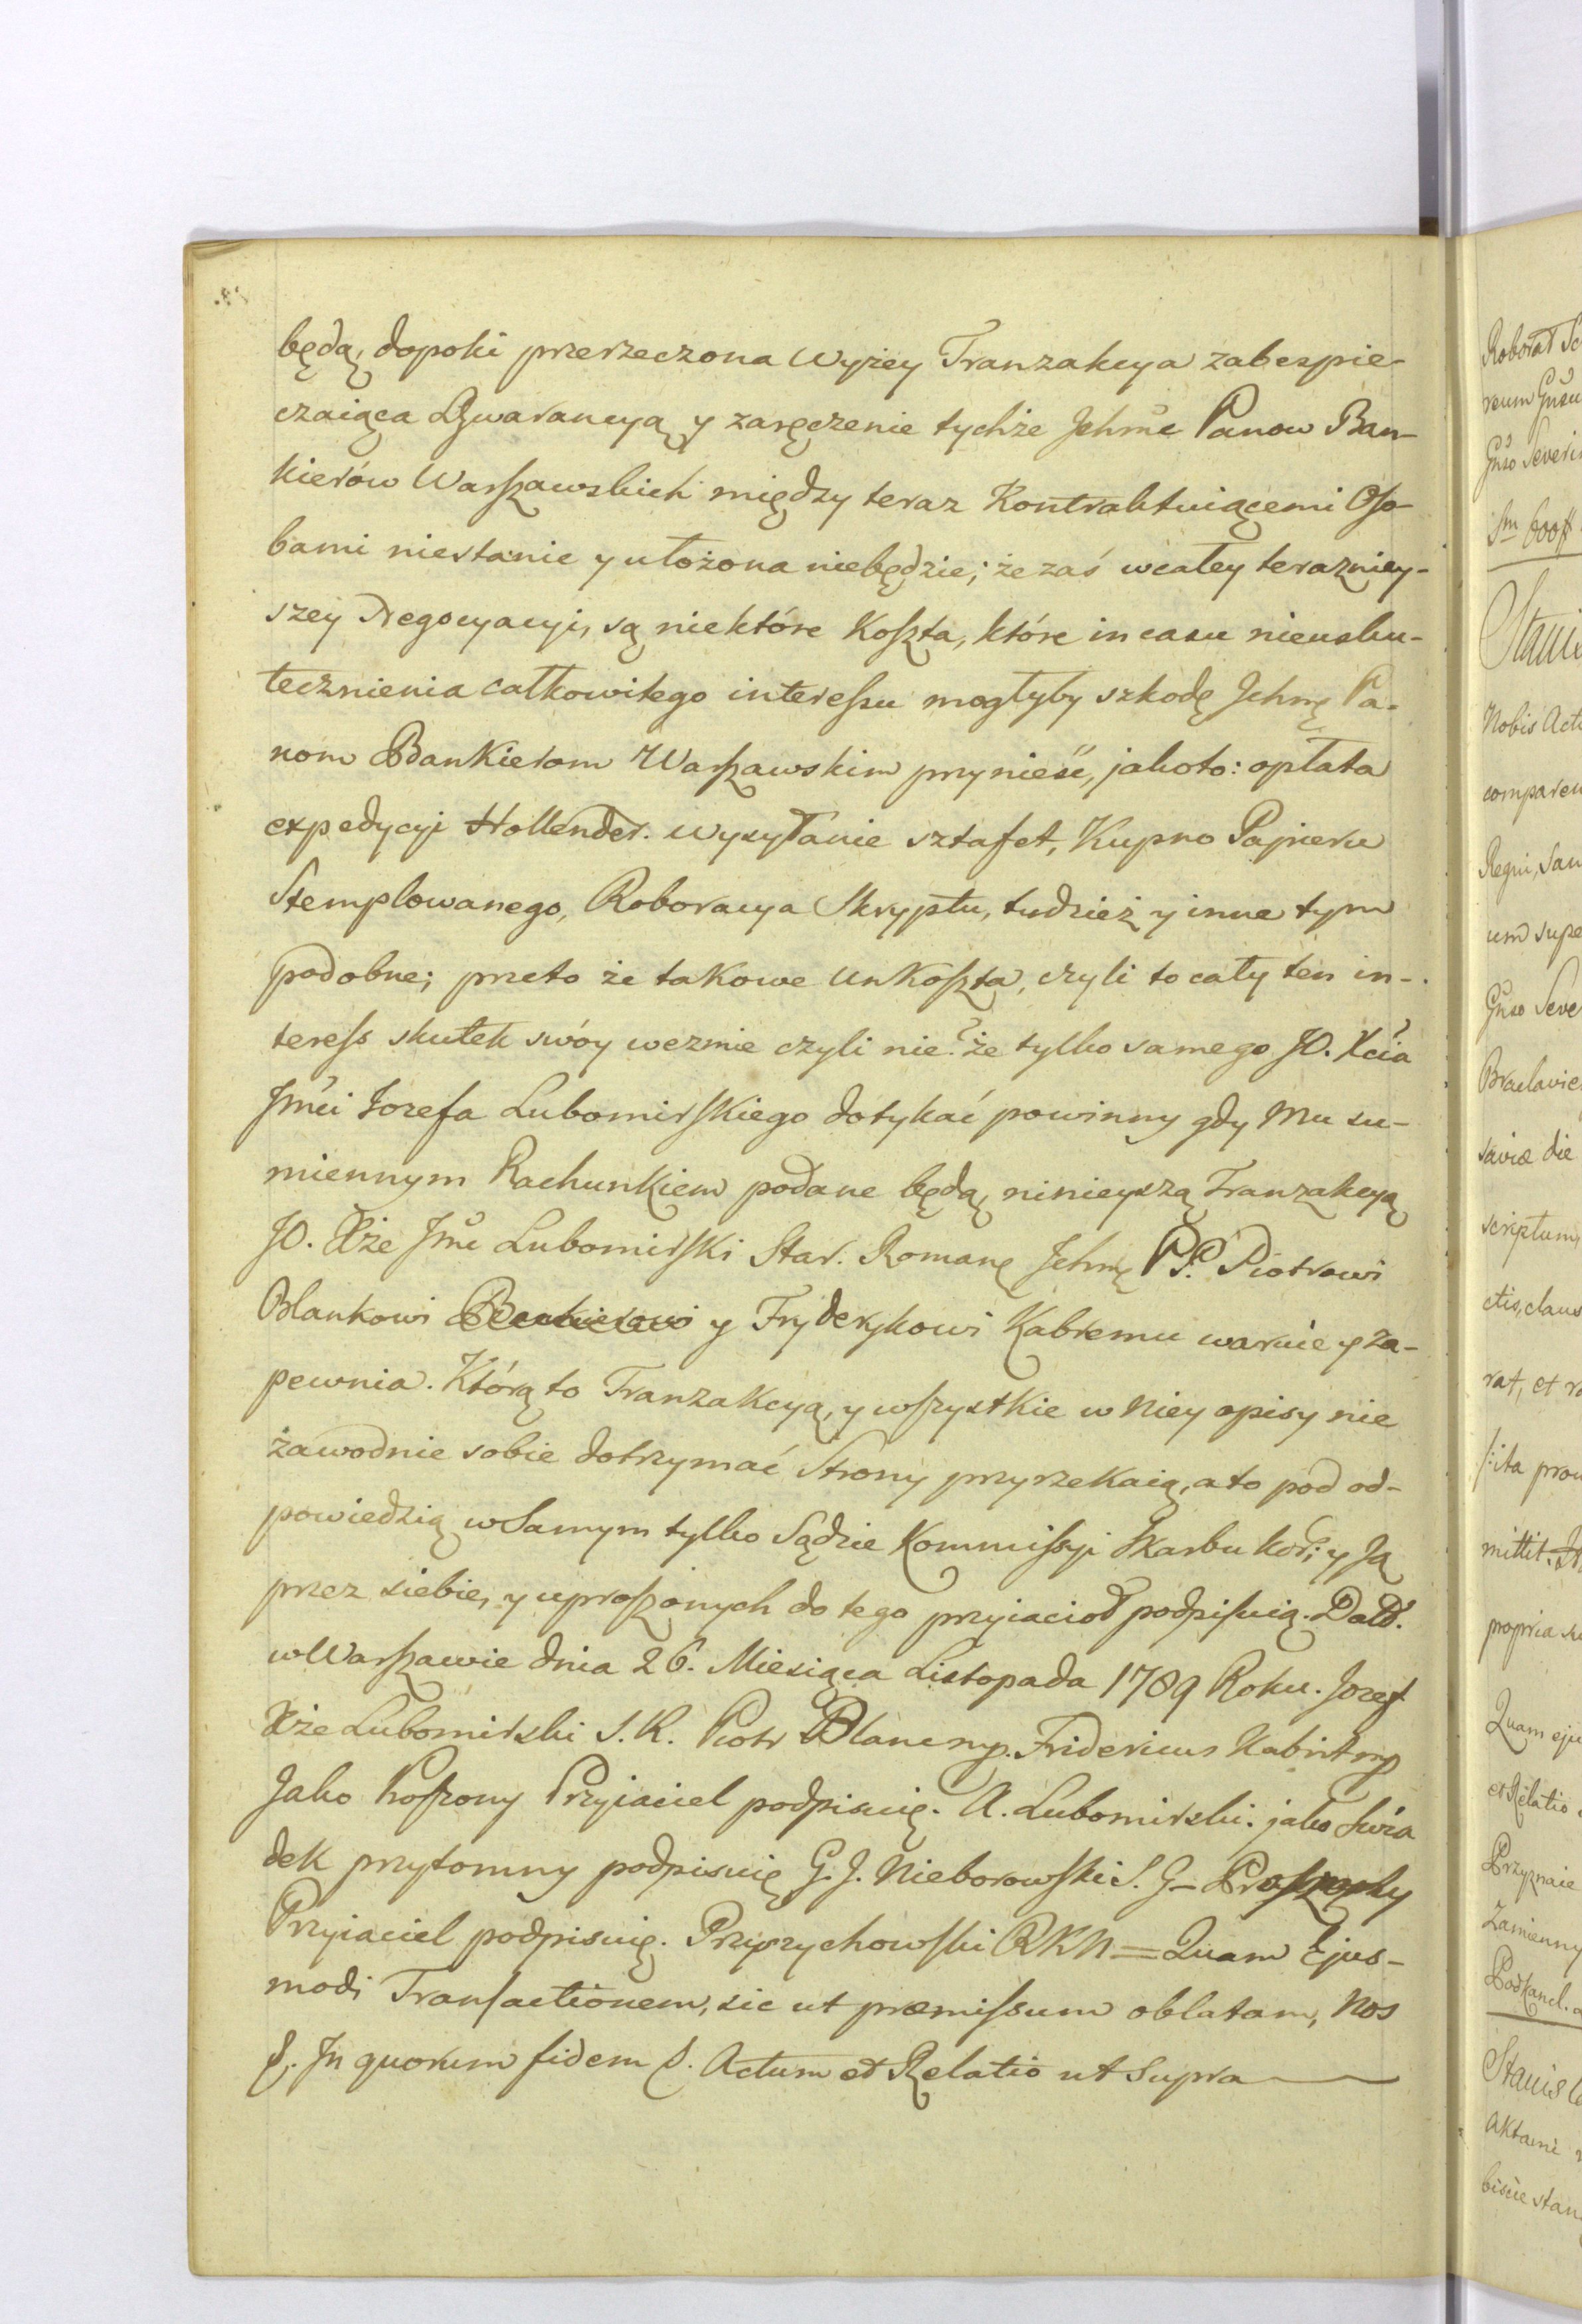 będą, dopoki przerzeczona wyżey Tranzakcya zabespie-
czaiąca Gwarancyą y zaręczenie tychże Jchmc Panow Ban-
kierów Warszawskich między teraz Kontraktuiącemi Oso-
bami niestanie y ułożona niebędzie; że zaś wcałey terazniey-
szey Negocyacyi, są niektóre Koszta, które in casu nieusku-
tecznienia całkowitego interessu mogłyby szkodę Jchmę Pa-
nom Bankierom Warszawskim przynieść, jakoto: opłata
expedycyi Hollender. wysyłanie sztafet, Kupno Papieru
Stemplowanego, Roboracya Skryptu, tudzież y inne tym
podobne; przeto że takowe unkoszta, czyli to cały ten in-
teress skutek swóy wezmie czyli nie? że tylko samego JO. Xcia
Jmći Jozefa Lubomirskiego dotykać powinny gdy mu su-
miennym Rachunkiem podane będą, ninieyszą Tranzakcyą
JO. Xże Jmć Lubomirski Star. Romanę Jchmę PP. Piotrowi
Blankowi y Fryderykowi Kabremu waruie y za-
pewnia. Którą to Tranzakcyą, y wszystkie w niey opisy nie
zawodnie sobie dotrzymać Strony przyrzekaią, a to pod od-
powiedzią w Samym tylko Sądzie Kommissyi Skarbu Kor: y Ją
przez siebie, y uproszonych do tego przyiacioł podpisuią. Datt.
w Warszawie dnia 26. Miesiąca Listopada 1789 Roku. Jozef
Xże Lubomirski S. R. Piotr Blanc mp. Fridericus Kabrit mp
Jako Proszony Przyiaciel podpisuię. A. Lubomirski: jako Swia
dek przytomny podpisuię G. J. Nieborowski S. G– Proszony
Przyiaciel podpisuię. Przyszychowski RKN = Quam Ejus-
modi Transactionem, sic ut præmissum oblatam, Nos
&. Jn quorum fidem &. Actum et Relatio ut Supra
Nobis Act
Regni, San
saviæ die
scriptum,
rat, et
propria
Quam eju
et Relatio
Przyznaie
Zamienny